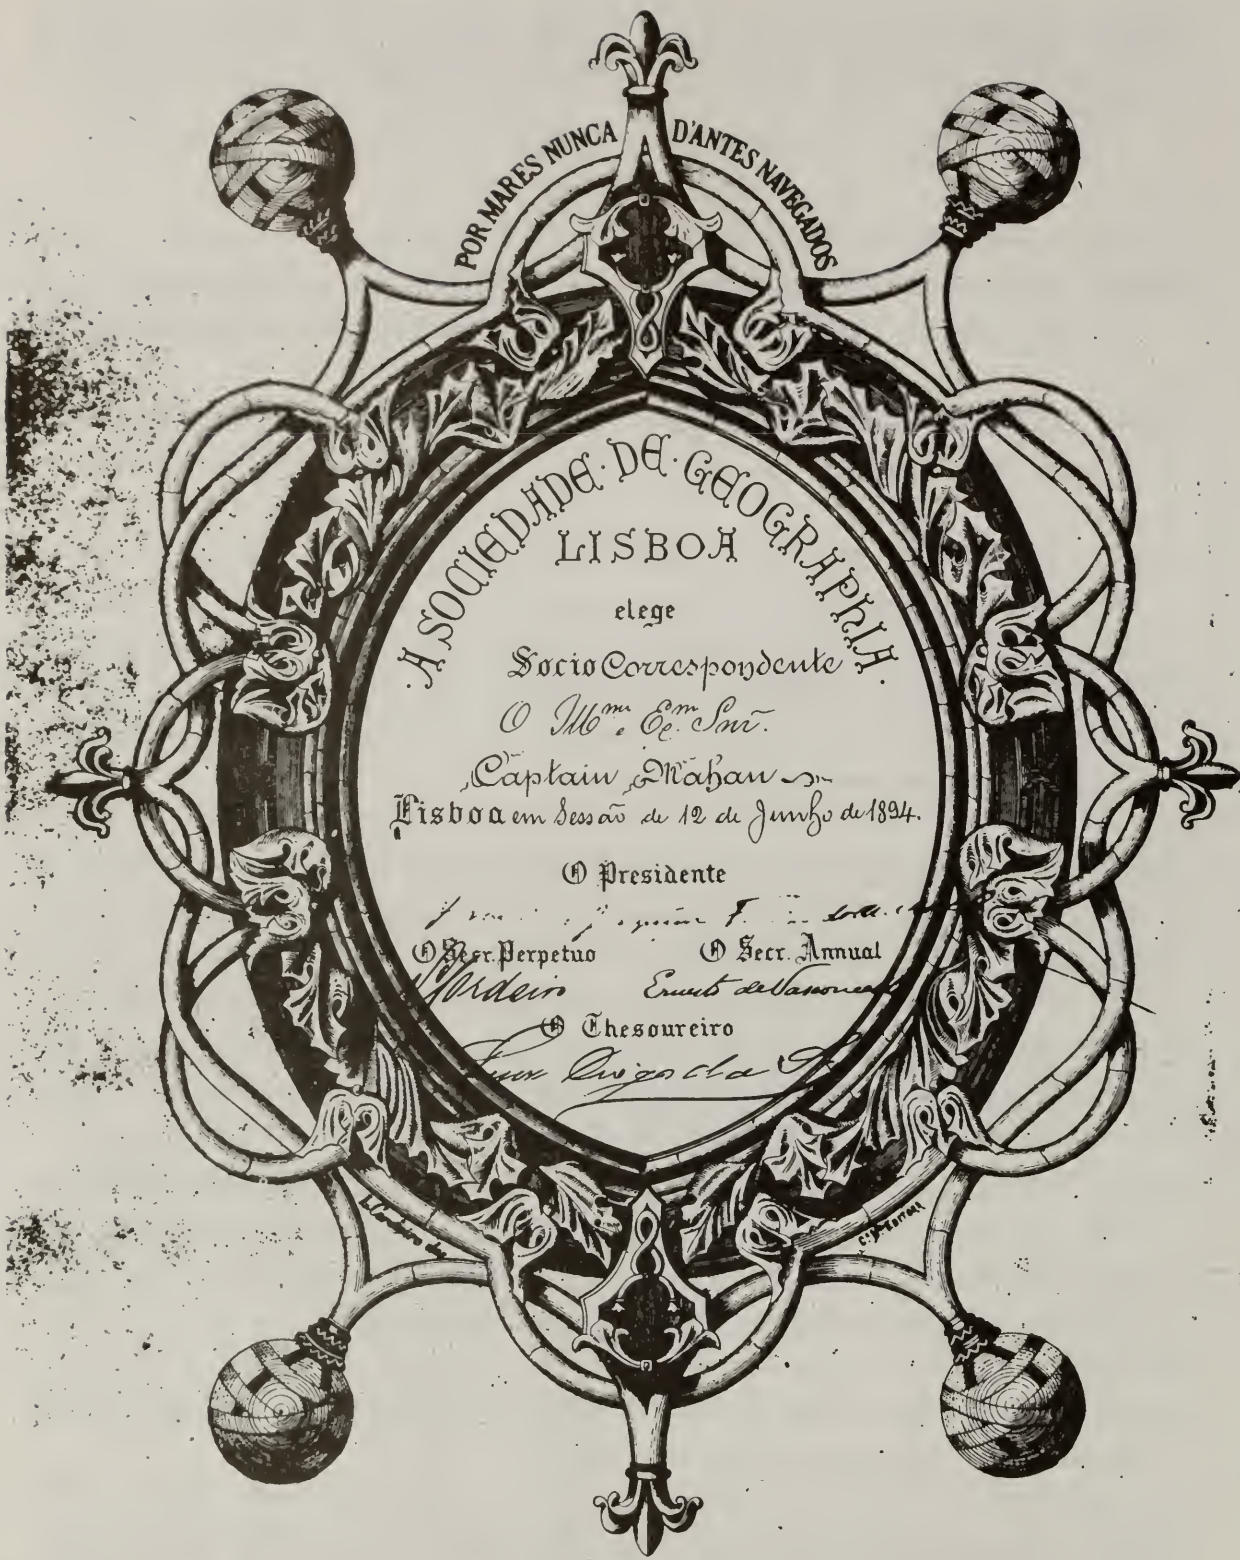 POR MARES NUNCA D'ANTES NAVEGADOS
·A SOCIEDADE·DE·GEOGRAPHIA·
LISBOA
elege
Socio Correspondente
O Ill.mo e Ex.mo Snr.
Captain Mahan
Lisboa em Sessão de 12 de Junho de 1894.
O Presidente
O Secr. Perpetuo O Secr. Annual
Cordeiro Ernesto de Vasconcellos
O Thesoureiro